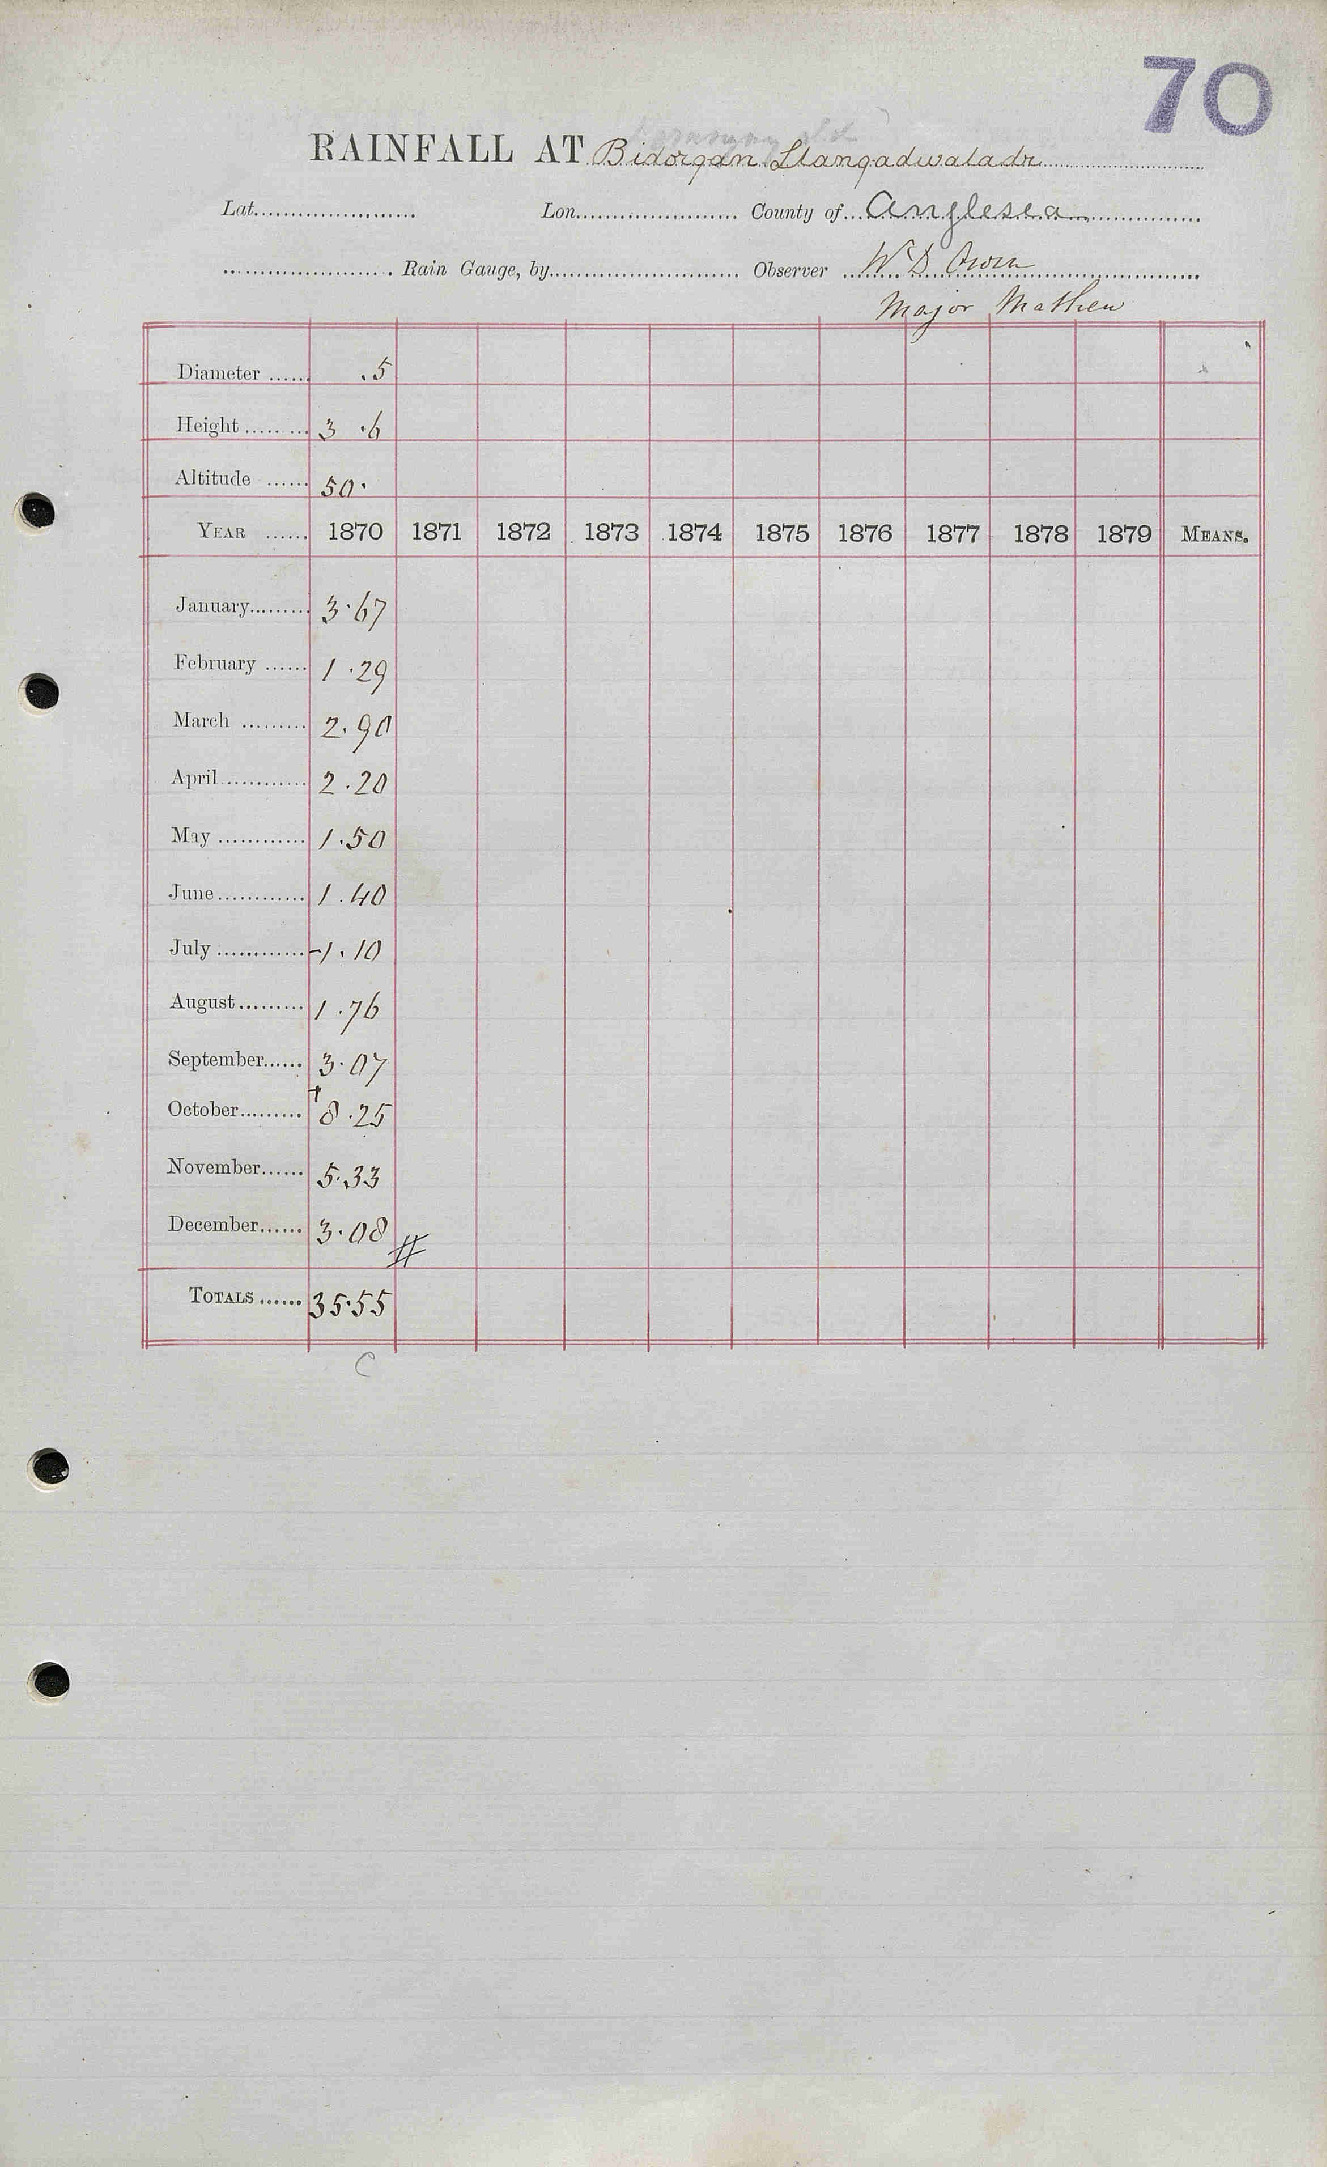 70
RAINFALL AT Bidorgan Llangadwaladr
Lat. Lon. County of Anglesea
Rain Gauge, by Observer W D Owen
Major Mathew
Diameter ...... .5
Height ...... 3 .6
Altitude ...... 50.
YEAR ...... 1870 1871 1872 1873 1874 1875 1876 1877 1878 1879 MEANS.
January ...... 3.67
February ...... 1.29
March ...... 2.90
April ...... 2.20
May ...... 1.50
June ...... 1.40
July ...... -1.10
August ...... 1.76
September ...... 3.07
October ...... +8.25
November ...... 5.33
December ...... 3.08 #
TOTALS ...... 35.55
C